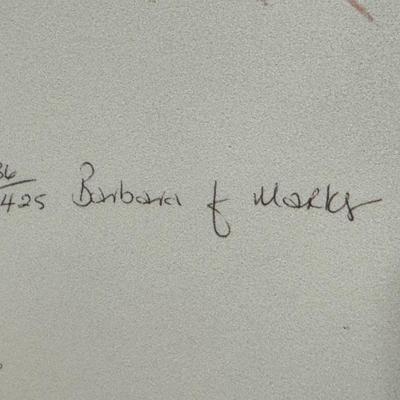 36/425 Barbara J Marks